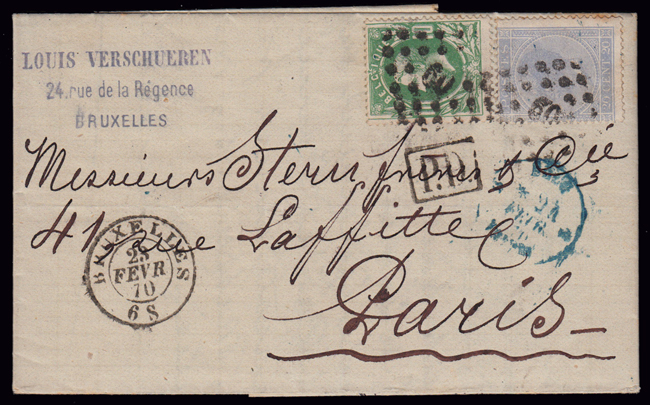 LOUIS VERSCHUEREN
24. rue de la Régence
BRUXELLES
BELGIQUE
60
60
P.D.
Messieurs Stern frères & Cie
41 rue Laffitte
Paris
BRUXELLES
23
FÉVR
70
6 S
24